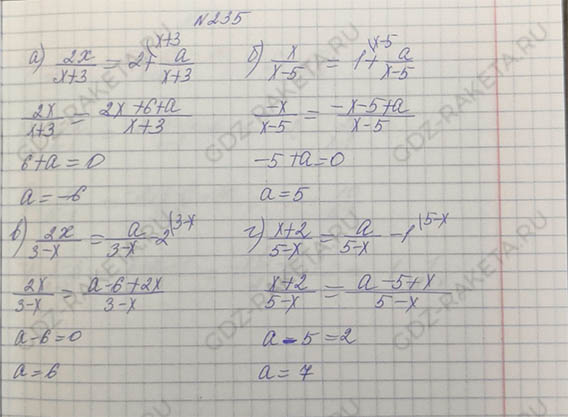 N235
а) 2x/(x+3) = 2 + a/(x+3) |x+3
2x/(x+3) = (2x+6+a)/(x+3)
6+a=0
a=-6
б) x/(x-5) = 1 + a/(x-5) |x-5
-x/(x-5) = (-x-5+a)/(x-5)
-5+a=0
a=5
в) 2x/(3-x) = a/(3-x) - 2 |3-x
2x/(3-x) = (a-6+2x)/(3-x)
a-6=0
a=6
г) (x+2)/(5-x) = a/(5-x) - 1 |5-x
(x+2)/(5-x) = (a-5+x)/(5-x)
a-5=2
a=7
GDZ-RAKETA.RU